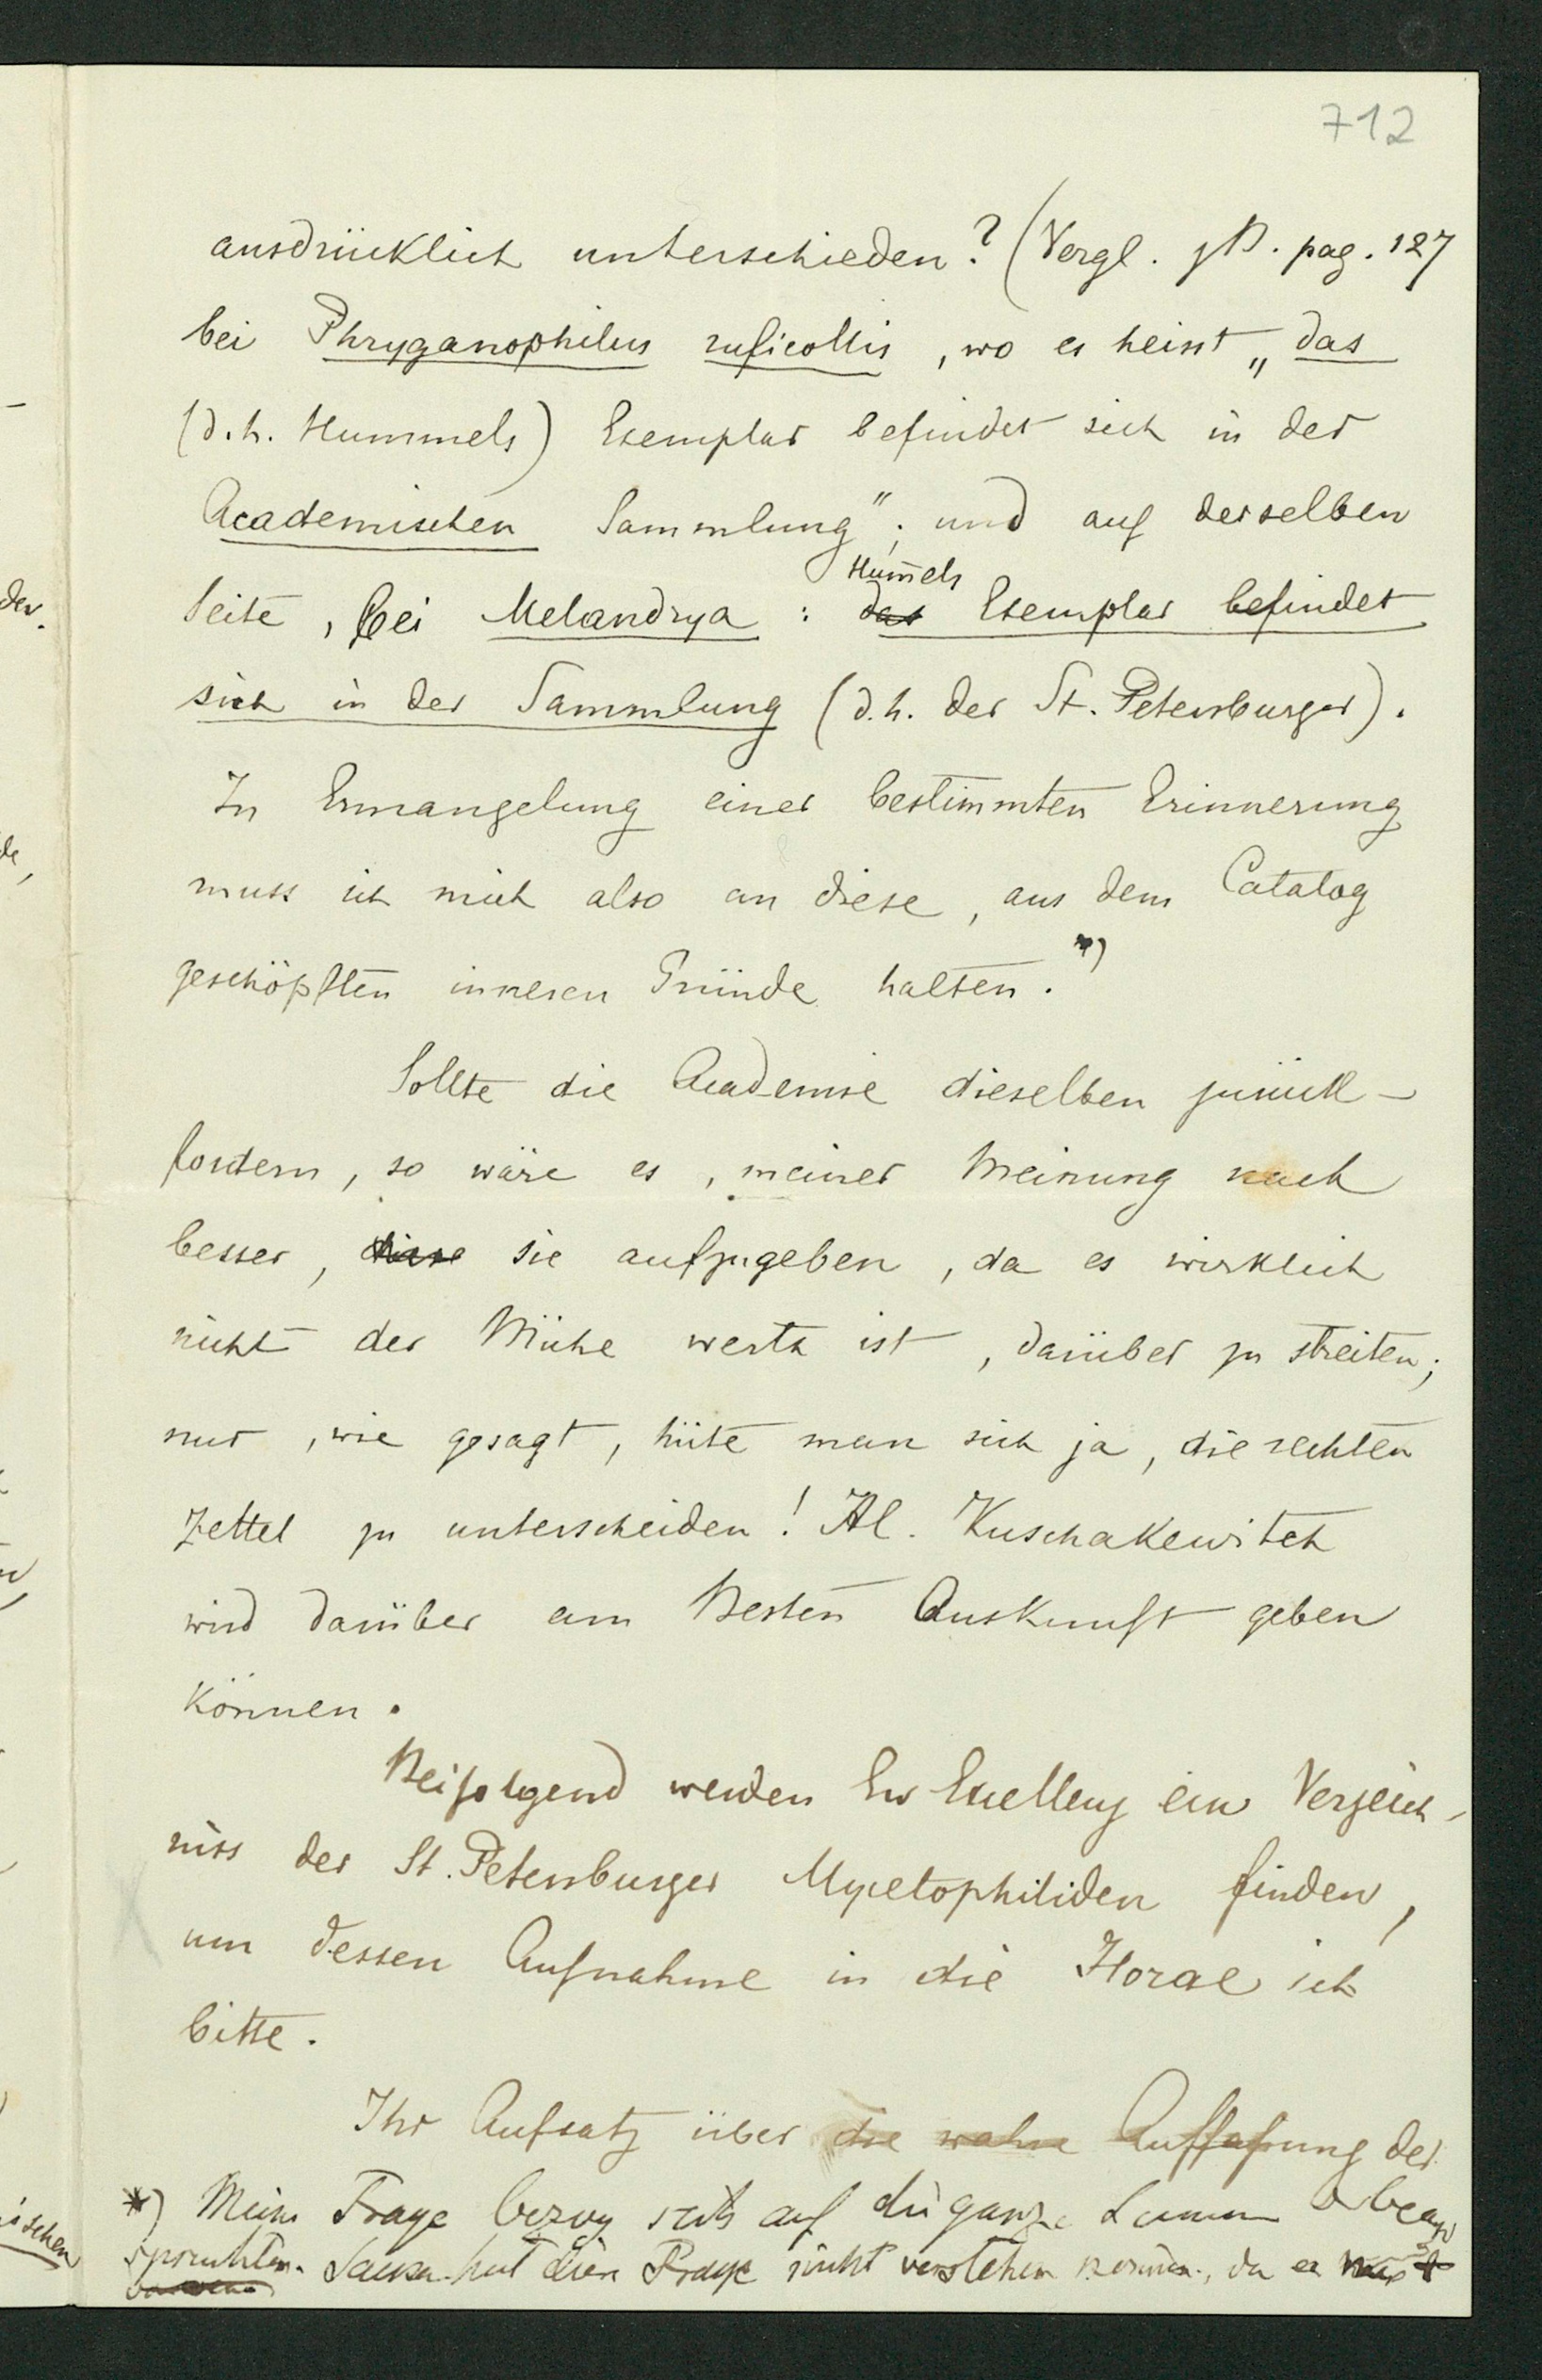 712
ausdrücklich unterschieden? (Vergl. z B. pag. 127
bei Phryganophilus ruficollis, wo es heisst „das
(d.h. Hummels) Exemplar befindet sich in der
Academischen Sammlung"; und auf derselben
Hum̄els
Seite, bei Melandrya: das Exemplar befindet
sich in der Sammlung (d.h. der St. Petersburger).
In Ermangelung einer bestimmten Erinnerung
muss ich mich also an diese, aus dem Catalog
geschöpften inneren Gründe halten. *)
Sollte die Academie dieselben zurück-
fordern, so wäre es, meiner Meinung nach
besser, diese sie aufzugeben, da es wirklich
nicht der Mühe werth ist, darüber zu streiten;
nur, wie gesagt, hüte man sich ja, die rechten
Zettel zu unterscheiden! Al. Kuschakewitch
wird darüber am Besten Auskunft geben
können.
Beifolgend werden Ew Excellenz ein Verzeich-
niss der St. Petersburger Mycetophiliden finden,
um dessen Aufnahme in die Horae ich
bitte.
Ihr Aufsatz über die wahre Auffassung der
*) Meine Frage bezog sich auf die ganze
spruchten. hat diese Frage nicht verstehen können, da er
der.
ischen